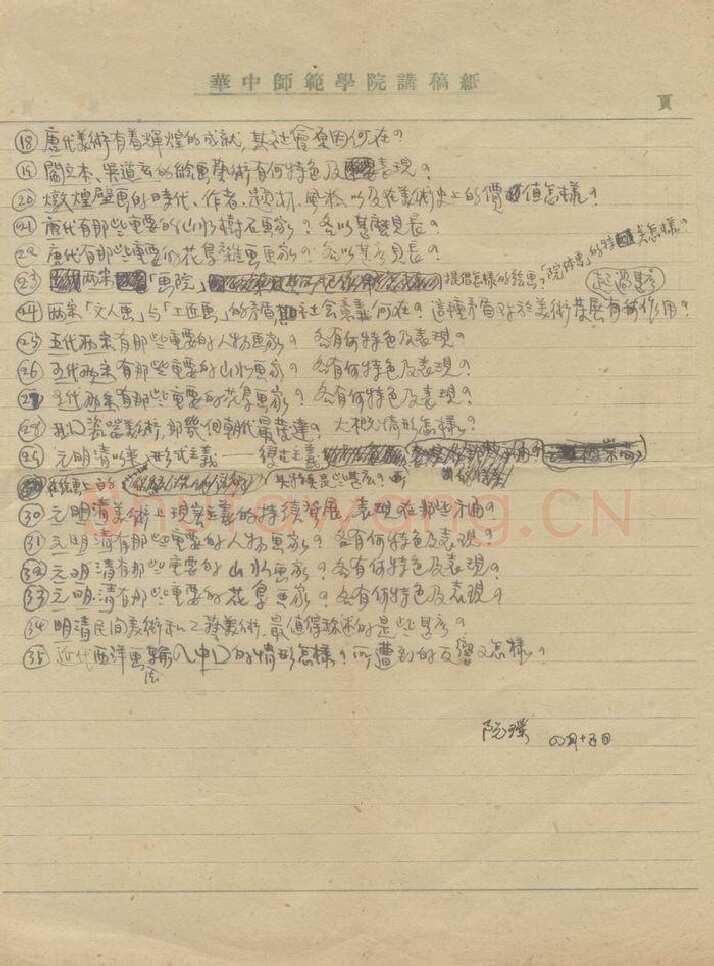 華中師範學院講稿紙
頁
⑱ 唐代美術有着輝煌的成就,其社會原因何在?
⑲ 閻立本、吳道玄的繪畫藝術有何特色及表現?
⑳ 燉煌壁畫的時代、作者、題材、風格,以及在美術史上的價值怎樣?
㉑ 唐代有那些重要的山水樹石畫家?各以甚麽見長?
㉒ 唐代有那些重要的花鳥雜畫畫家?各以甚么見長?
㉓ 兩宋「画院」提倡怎樣的繪畫?「院体画」的特点怎樣?
㉔ 兩宋「文人画」与「工匠画」的矛盾,其社会意義何在?這種矛盾对於美術發展有何作用?
㉕ 五代兩宋有那些重要的人物画家?各有何特色及表現?
㉖ 五代兩宋有那些重要的山水画家?各有何特色及表現?
㉗ 五代兩宋有那些重要的花鳥画家?各有何特色及表現?
㉘ 我国瓷器美術,那幾個朝代最發達?大概情形怎樣?
㉙ 元明清以來,形式主義——復古主義
在繪画上的
㉚ 元明清美術上現實主義的持續發展,表現在那些方面?
㉛ 元明清有那些重要的人物画家?各有何特色及表現?
㉜ 元明清有那些重要的山水画家?各有何特色及表現?
㉝ 元明清有那些重要的花鳥画家?各有何特色及表現?
㉞ 明清民间美術和工藝美術,最值得称述的是些甚么?
㉟ 近代西洋画輸入中国的情形怎樣?所遭到的反響又怎樣?
阮璞 四月十五日
photowang.CN